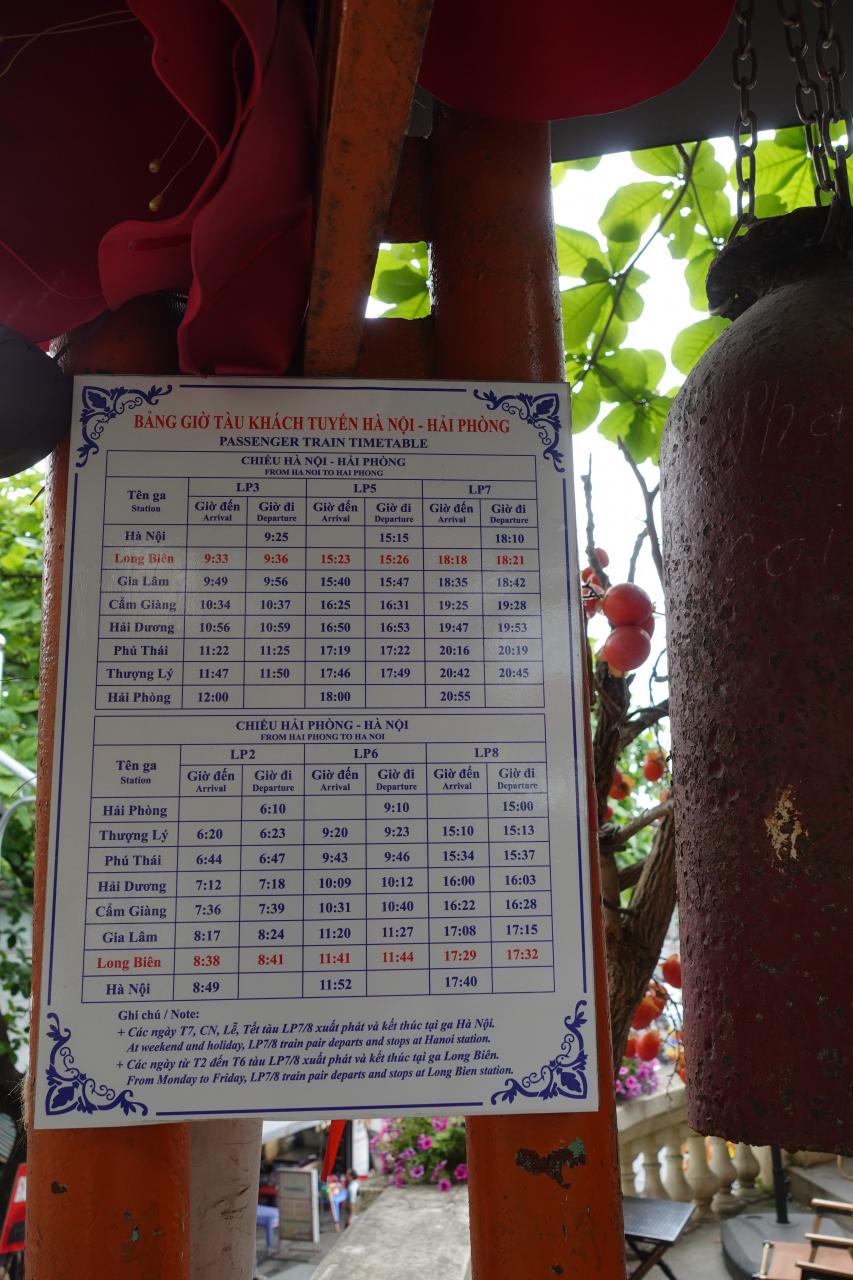 BẢNG GIỜ TÀU KHÁCH TUYẾN HÀ NỘI - HẢI PHÒNG
PASSENGER TRAIN TIMETABLE
CHIỀU HÀ NỘI - HẢI PHÒNG
FROM HA NOI TO HAI PHONG
Tên ga LP3 LP5 LP7
Station Giờ đến Giờ đi Giờ đến Giờ đi Giờ đến Giờ đi
Arrival Departure Arrival Departure Arrival Departure
Hà Nội 9:25 15:15 18:10
Long Biên 9:33 9:36 15:23 15:26 18:18 18:21
Gia Lâm 9:49 9:56 15:40 15:47 18:35 18:42
Cẩm Giàng 10:34 10:37 16:25 16:31 19:25 19:28
Hải Dương 10:56 10:59 16:50 16:53 19:47 19:53
Phú Thái 11:22 11:25 17:19 17:22 20:16 20:19
Thượng Lý 11:47 11:50 17:46 17:49 20:42 20:45
Hải Phòng 12:00 18:00 20:55
CHIỀU HẢI PHÒNG - HÀ NỘI
FROM HAI PHONG TO HA NOI
Tên ga LP2 LP6 LP8
Station Giờ đến Giờ đi Giờ đến Giờ đi Giờ đến Giờ đi
Arrival Departure Arrival Departure Arrival Departure
Hải Phòng 6:10 9:10 15:00
Thượng Lý 6:20 6:23 9:20 9:23 15:10 15:13
Phú Thái 6:44 6:47 9:43 9:46 15:34 15:37
Hải Dương 7:12 7:18 10:09 10:12 16:00 16:03
Cẩm Giàng 7:36 7:39 10:31 10:40 16:22 16:28
Gia Lâm 8:17 8:24 11:20 11:27 17:08 17:15
Long Biên 8:38 8:41 11:41 11:44 17:29 17:32
Hà Nội 8:49 11:52 17:40
Ghi chú / Note:
+ Các ngày T7, CN, Lễ, Tết tàu LP7/8 xuất phát và kết thúc tại ga Hà Nội.
At weekend and holiday, LP7/8 train pair departs and stops at Hanoi station.
+ Các ngày từ T2 đến T6 tàu LP7/8 xuất phát và kết thúc tại ga Long Biên.
From Monday to Friday, LP7/8 train pair departs and stops at Long Bien station.